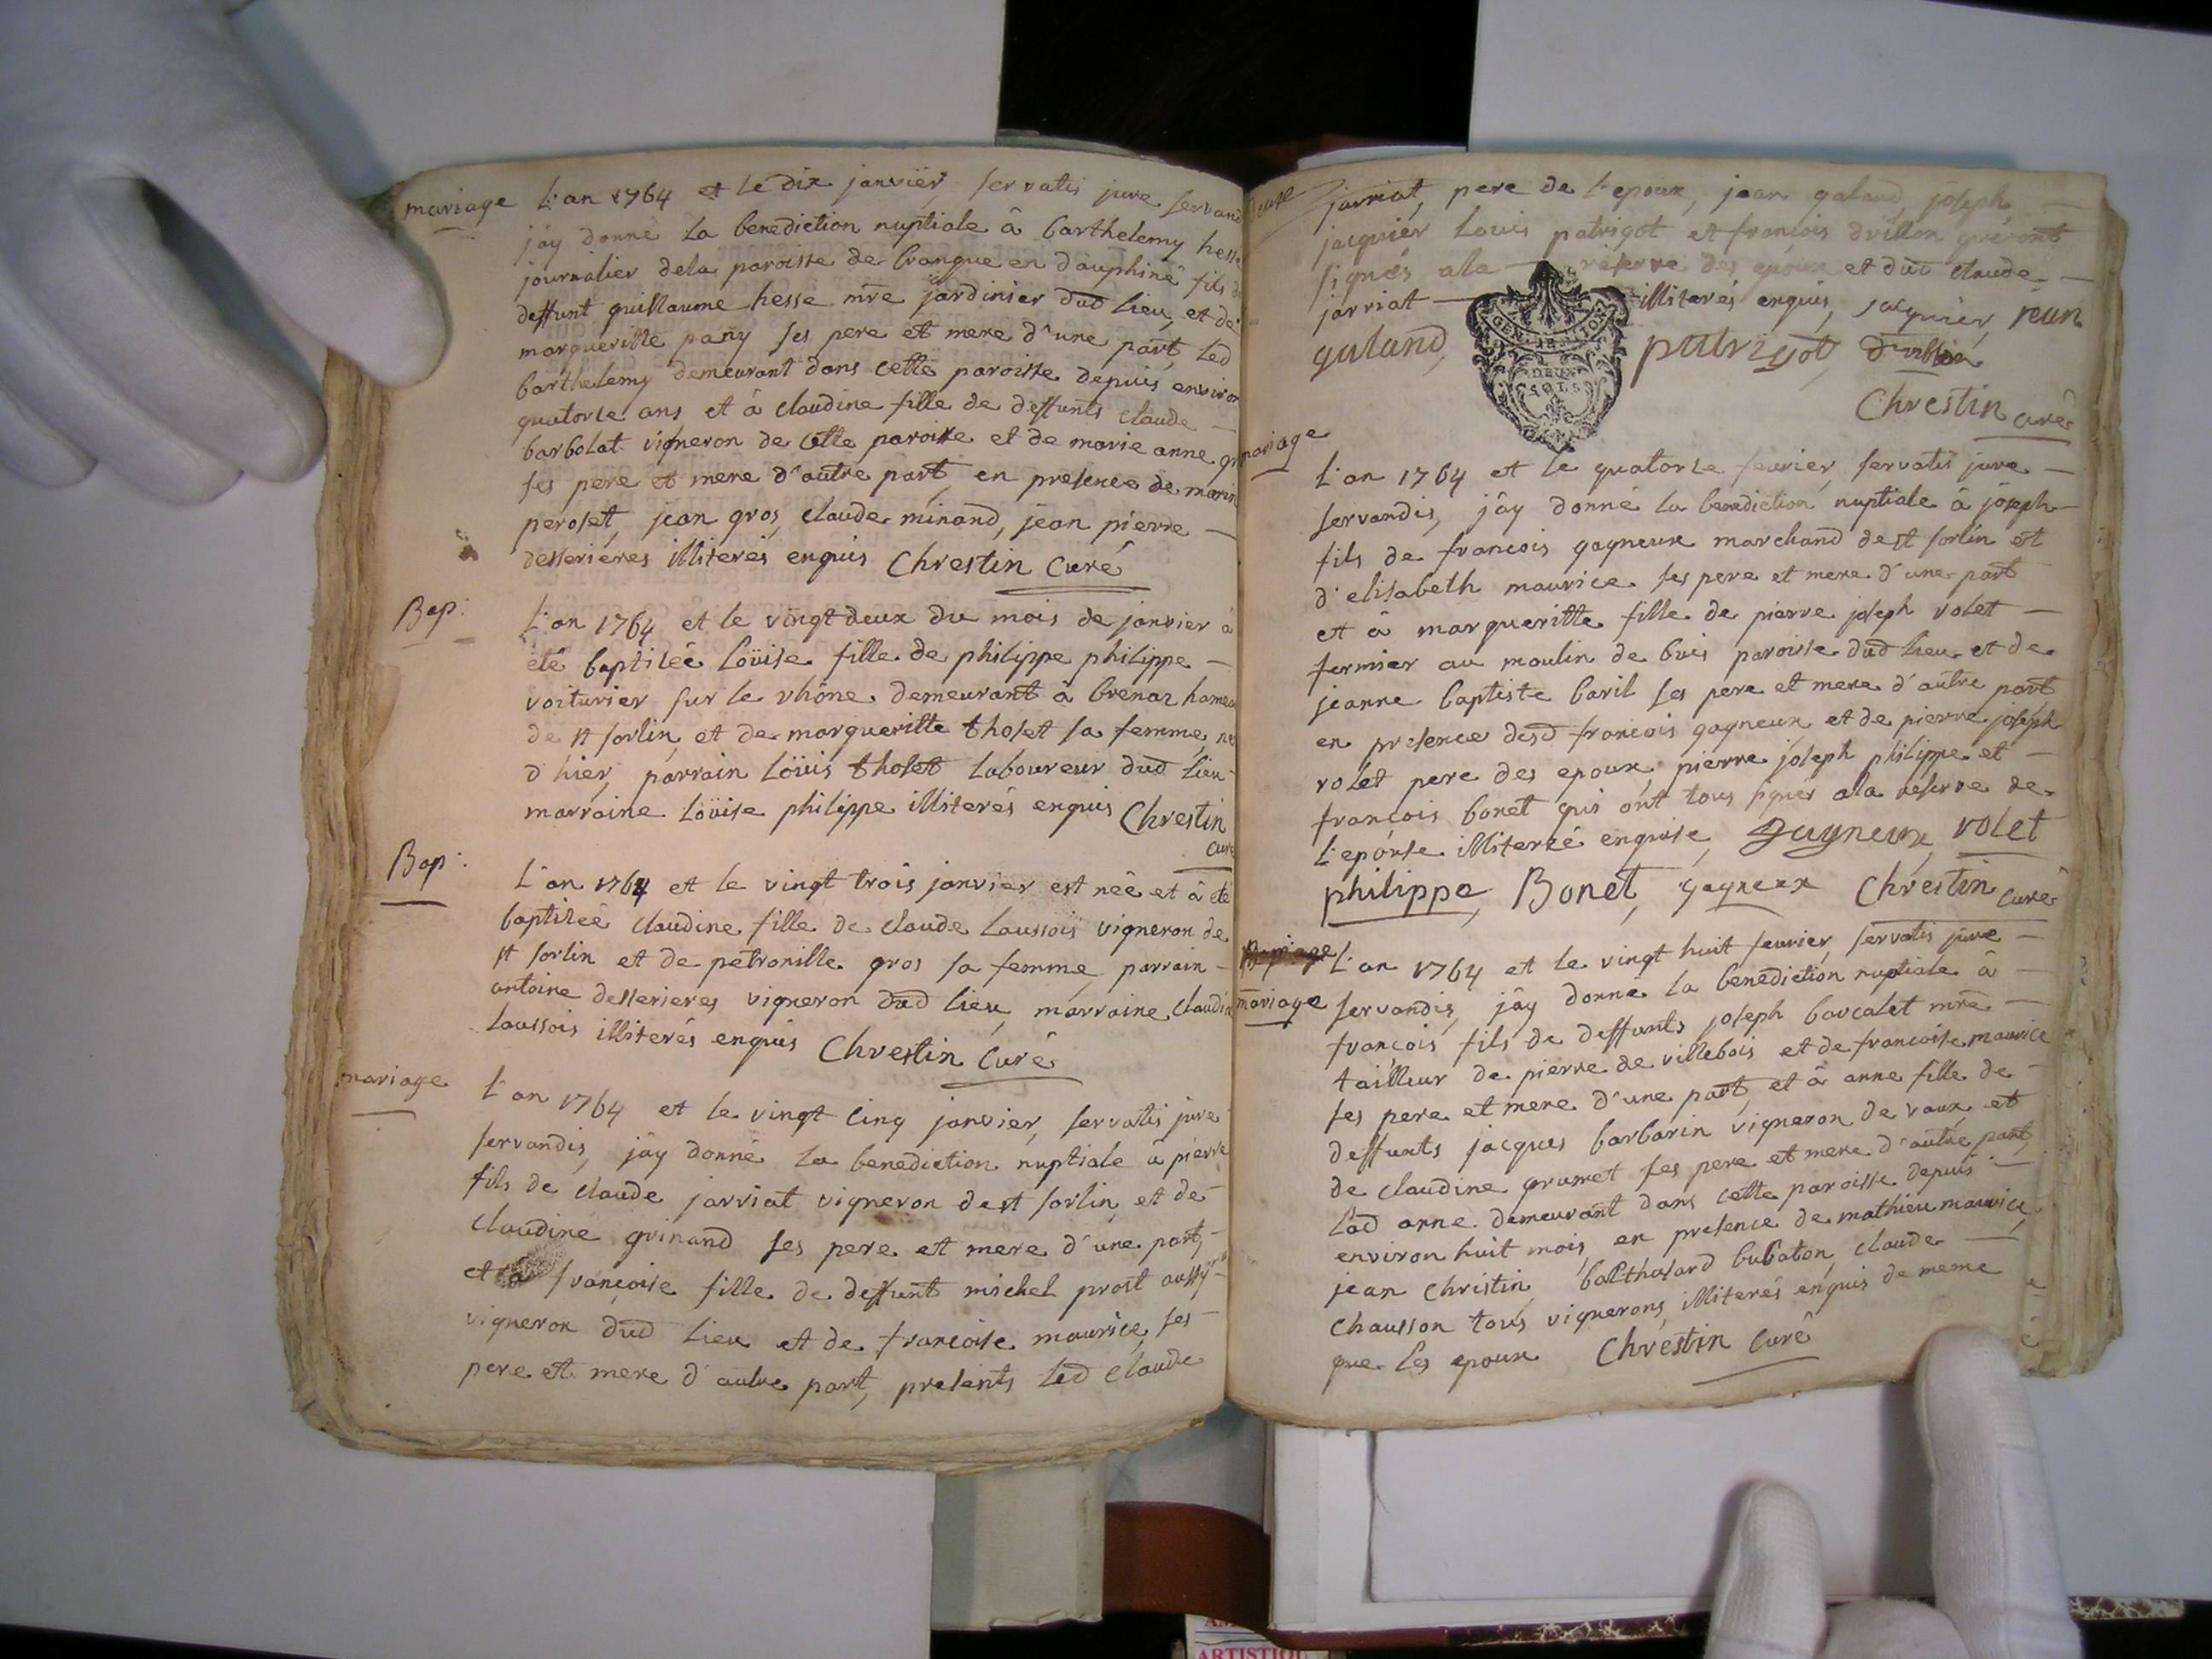 mariage L'an 1764 et le dix janvier, servatis jure servand
j'ay donné la benediction nuptiale â barthelemy hesse
journalier dela paroisse de brangue en dauphiné fils d
deffunt guillaume hesse mre jardinier dud lieu, et de
margueritte pany ses pere et mere d'une part, led
barthelemy demeurant dans cette paroisse depuis environ
quatorze ans et â claudine fille de deffunts claude —
barbolat vigneron de cette paroisse et de marie anne gr
ses pere et mere d'autre part, en presence de marin
peroset, jean gros, claude minand, jean pierre —
desserieres illiterés enquis Chrestin Curé
Bap: L'an 1764 et le vingt deux du mois de janvier â
eté baptisée Loüise fille de philippe philippe —
voiturier sur le rhône demeurant â brenaz hameau
de st sorlin, et de margueritte tholet sa femme, né
d'hier, parrain Loüis tholet laboureur dud lieu
marraine Loüise philippe illiterés enquis Chrestin
curé
Bap: L'an 1764 et le vingt trois janvier est neé et â eté
baptiseé claudine fille de claude Laussois vigneron de
st sorlin et de petronille gros sa femme, parrain —
antoine desserieres vigneron dud lieu, marraine claudin
Laussois illiterés enquis Chrestin Curé
mariage L'an 1764 et le vingt cinq janvier, servatis jure
servandis, j'ay donné la benediction nuptiale â pierre
fils de claude jarriat vigneron de st sorlin, et de
claudine grinand ses pere et mere d'une part,
et â françoise fille de deffunt michel prost aussy
vigneron dud lieu et de françoise maurice, ses
pere et mere d'autre part, presents led claude
jarriat, pere de l'epoux, jean galand, joseph —
jacquier Louis patrigot et françois drillon qui ont
signés ala — reserve des epoux et dud claude —
jarriat — illiterés enquis, jacquier, jean
galand, patrigot, drillon
GEN
DEUX
SOLS
Chrestin curé
mariage
L'an 1764 et le quatorze feuvrier, servatis jure —
servandis, j'ay donné la benediction nuptiale â joseph
fils de françois gagneux marchand de st sorlin et
d'elisabeth maurice ses pere et mere d'une part
et â margueritte fille de pierre joseph volet —
fermier au moulin de buis paroisse dud lieu et de
jeanne baptiste baril ses pere et mere d'autre part
en presence desd françois gagneux et de pierre joseph
volet pere des epoux, pierre joseph philippe et —
françois bonet qui ont tous signés ala reserve de
l'epouse illiterée enquise, Gagneux, volet
philippe, Bonet, gagneux Chrestin curé
mariage L'an 1764 et le vingt huit feuvrier, servatis jure —
mariage servandis, j'ay donné la benediction nuptiale â —
françois fils de deffunts joseph baucalet mre —
tailleur de pierre de villebois et de françoise maurice
ses pere et mere d'une part, et â anne fille de —
deffunts jacques barbarin vigneron de vaux, et
de claudine grumet ses pere et mere d'autre part,
lad anne demeurant dans cette paroisse depuis —
environ huit mois, en presence de mathieu maurice,
jean christin, balthasard bubaton, claude —
chausson tous vignerons, illiterés enquis de meme
que les epoux Chrestin Curé
ARTISTIQU